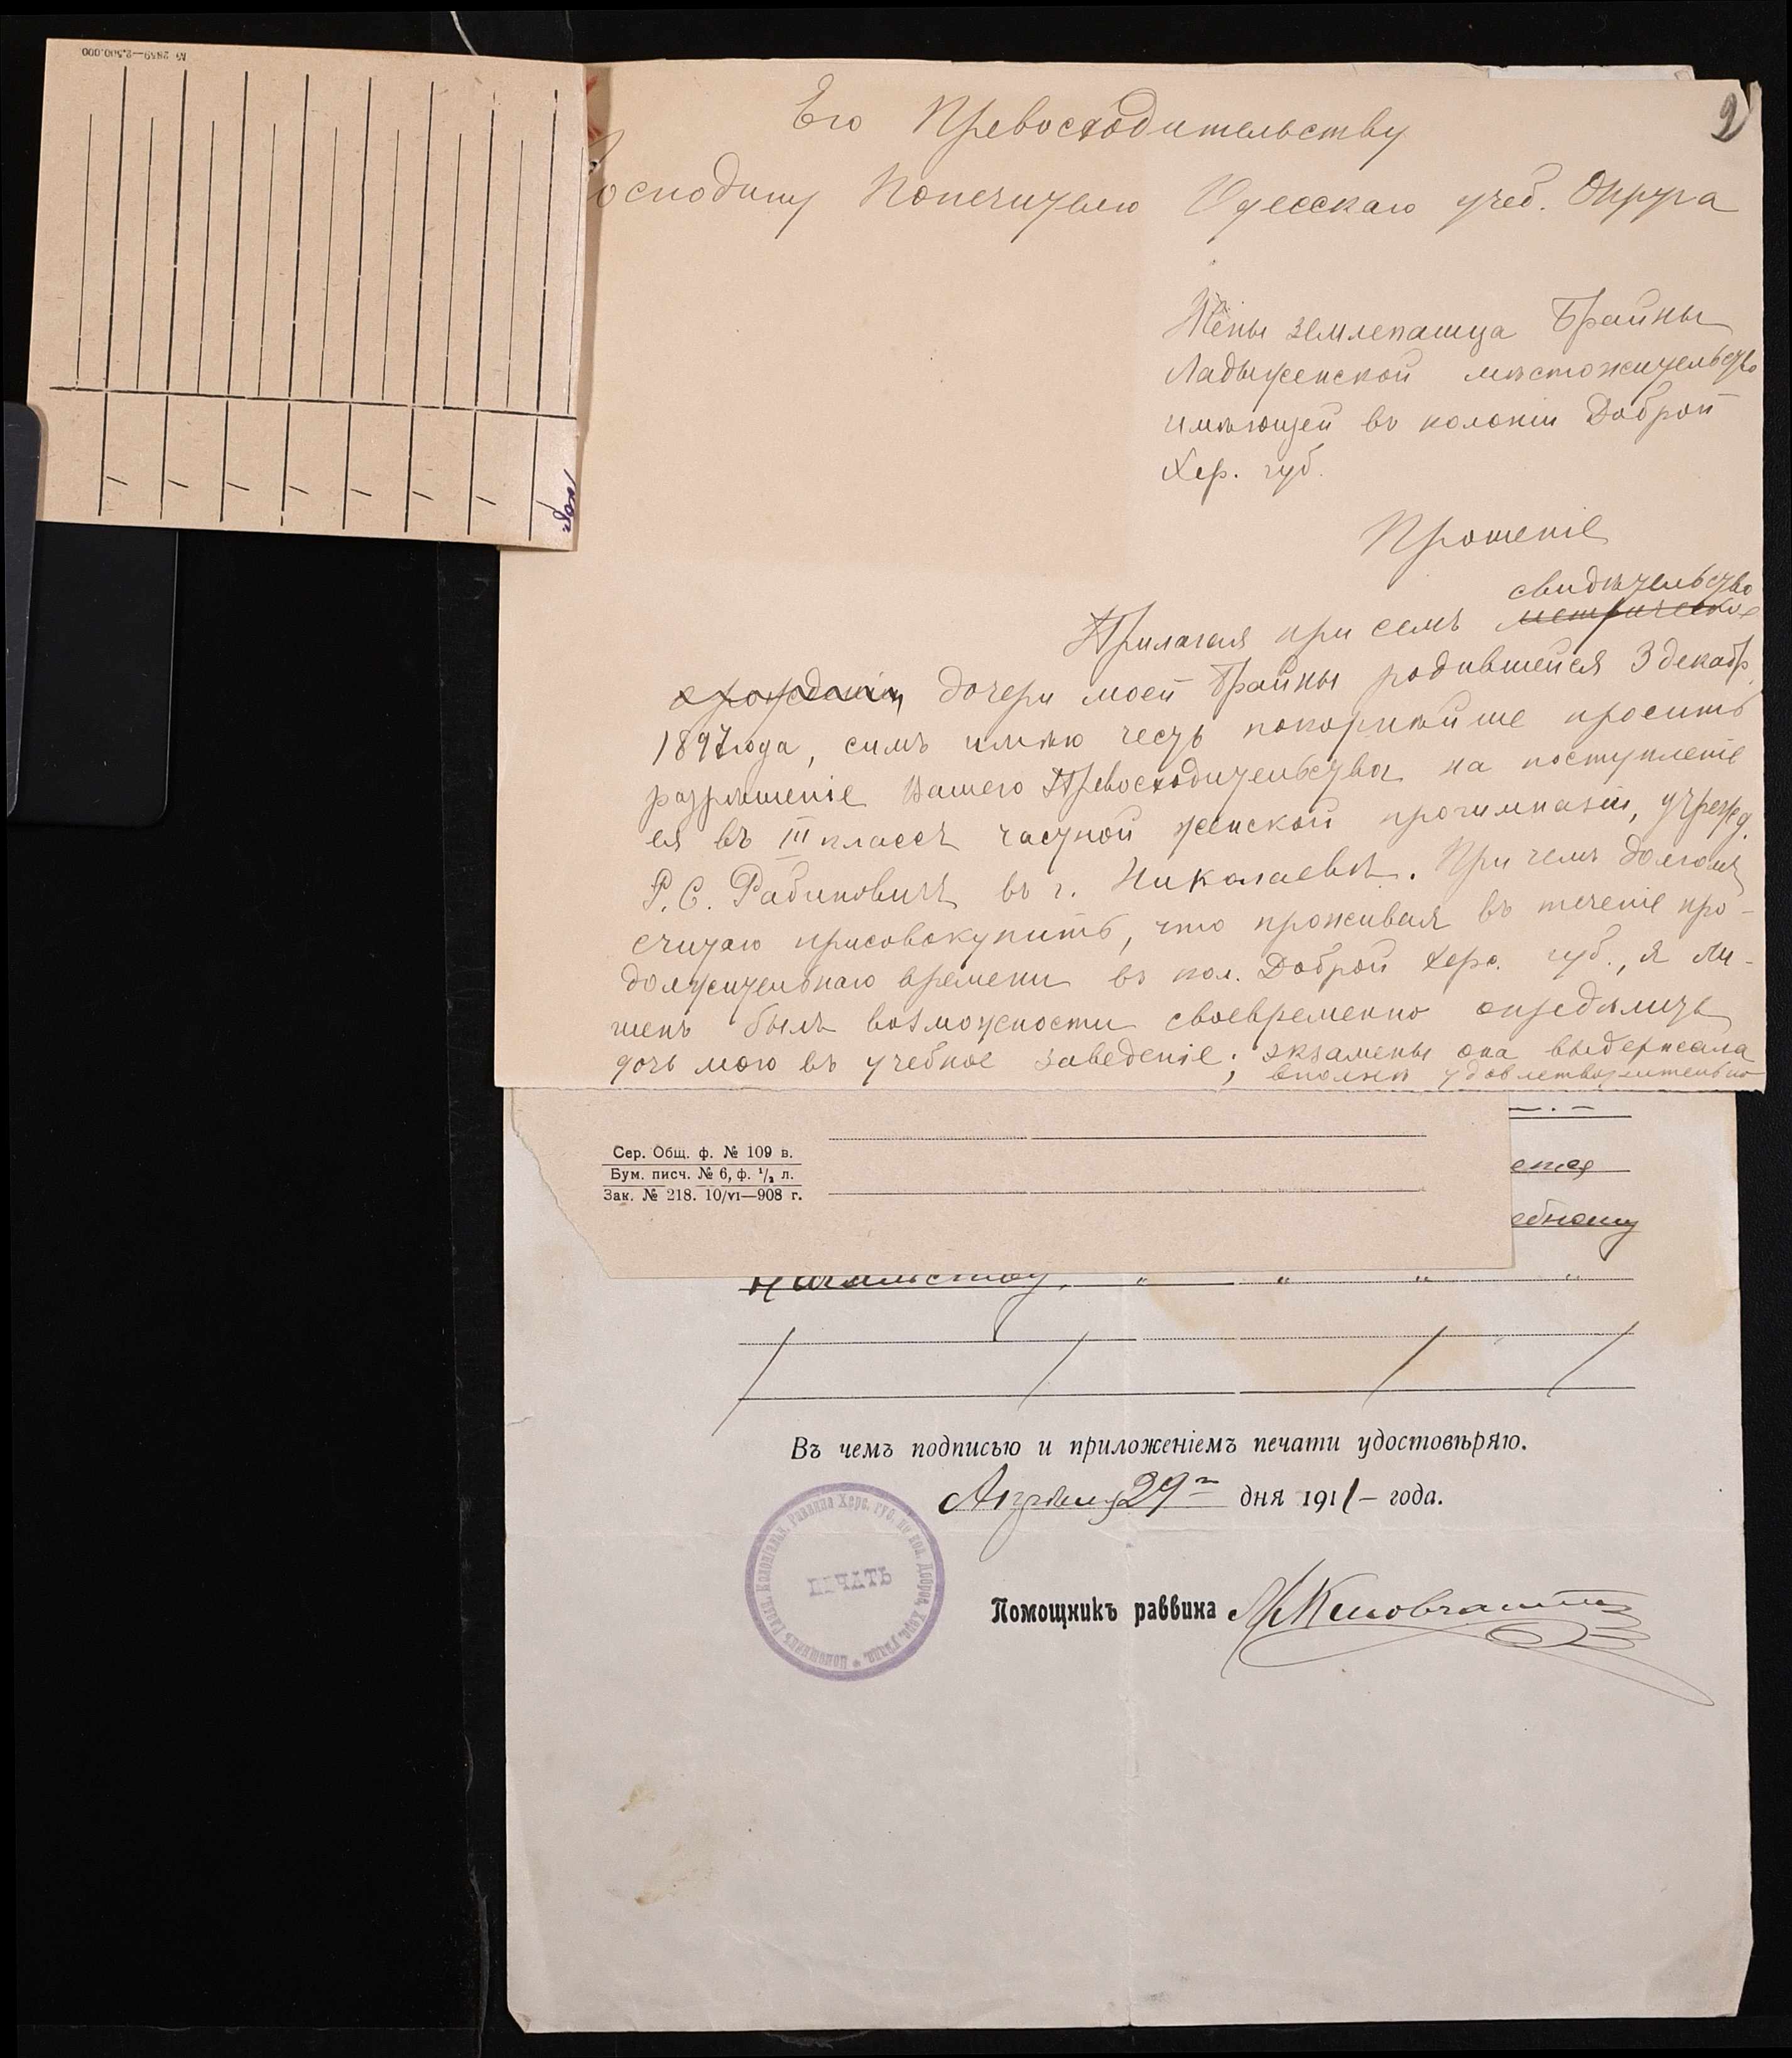 № 2849—2.500.000
2
Его Превосходительству
Господину Попечителю Одесскаго учеб. Округа
Жены землепашца Брайны
Ладыженской мѣстожительство
имѣющей въ колоніи Доброй
Хер. губ.
Прошеніе
свидѣтельство
Прилагая при семъ метрическое
о рожденіи дочери моей Брайны родившейся 3 декабр.
1897 года, симъ имѣю честь покорнѣйше просить
разрѣшеніе Вашего Превосходительства на поступленіе
ея въ III классъ частной женской прогимназіи, учрежд.
Р. С. Рабиновичъ въ г. Николаевѣ. При чемъ долгомъ
считаю присовокупить, что проживая въ теченіе про-
должительнаго времени въ кол. Доброй Херс. губ., я ли-
шенъ былъ возможности своевременно опредѣлить
дочь мою въ учебное заведеніе; экзамены она выдержала
вполнѣ удовлетворительно
Сер. Общ. ф. № 109 в.
Бум. писч. № 6, ф. ½ л.
Зак. № 218. 10/VI—908 г.
ется
ебному
Начальству.
Въ чемъ подписью и приложеніемъ печати удостовѣряю.
Апрѣля 29 дня 1911 – года.
Помощникъ раввина
ПЕЧАТЬ
Помощникъ Колоніальн. Раввина Херс. губ. по кол. Доброе, Херс. уѣзда.